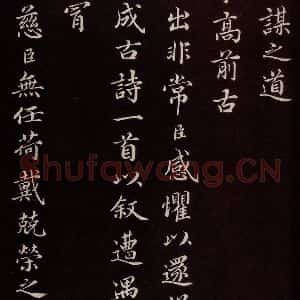 謀之道
高前古
出非常臣感懼以還
成古詩一首以叙遭遇
冒
慈臣無任荷戴兢榮之
Shufawang.CN